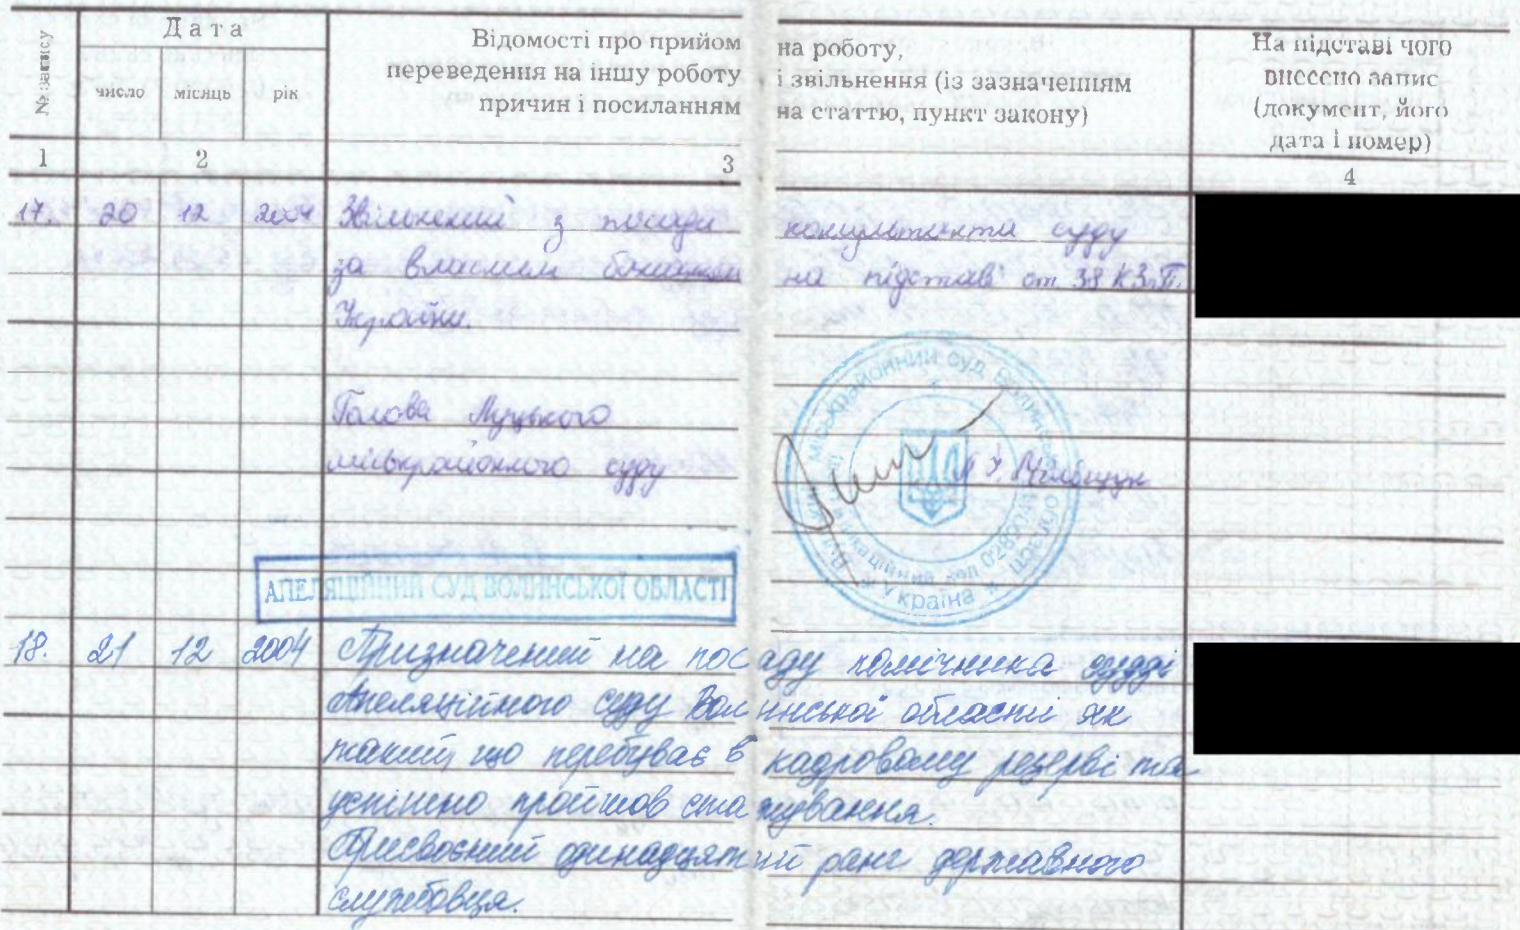 № запису
Дата
число місяць рік
Відомості про прийом на роботу,
переведення на іншу роботу і звільнення (із зазначенням
причин і посиланням на статтю, пункт закону)
На підставі чого
внесено запис
(документ, його
дата і номер)
1 2 3 4
17. 20 12 2004 Звільнений з посади консультанта суду
за власним бажанням на підставі ст 38 КЗпП
України.
Голова Луцького
міськрайонного суду
міськрайонний суд Волинської області
ідентифікаційний код
* Україна *
АПЕЛЯЦІЙНИЙ СУД ВОЛИНСЬКОЇ ОБЛАСТІ
18. 21 12 2004 Призначений на посаду помічника судді
Апеляційного суду Волинської області як
такий, що перебуває в кадровому резерві та
успішно пройшов стажування.
Присвоєний одинадцятий ранг державного
службовця.